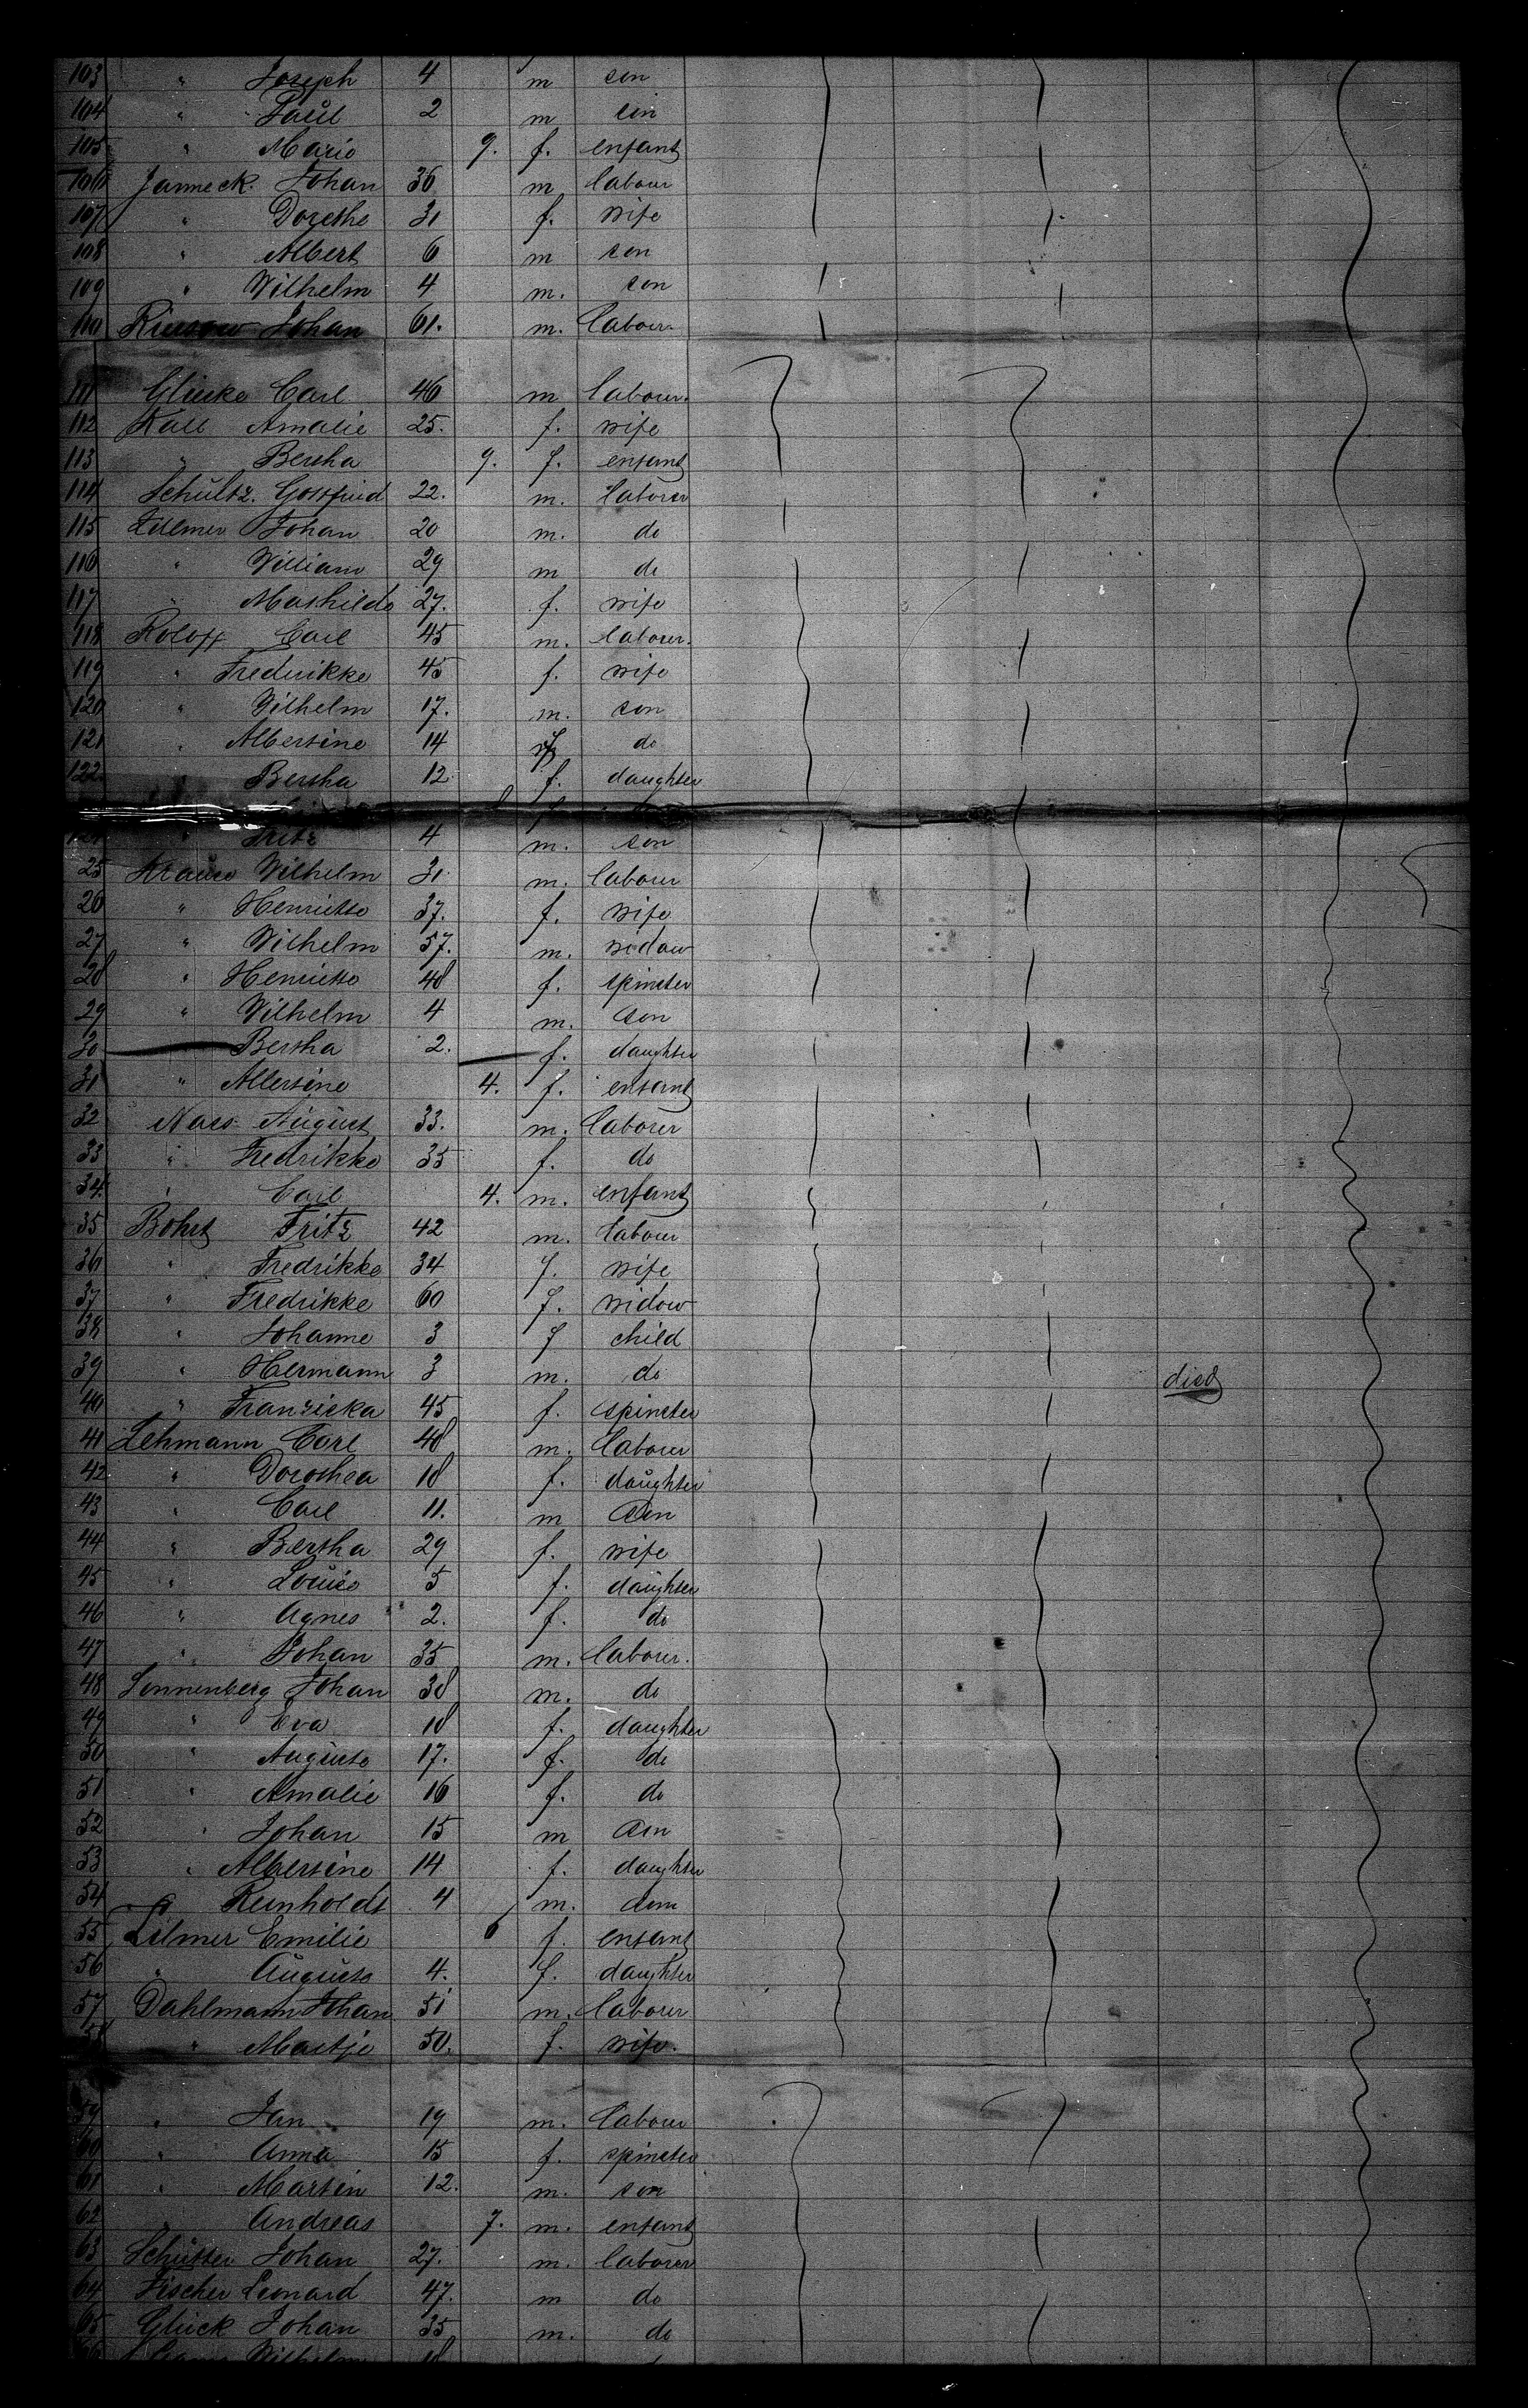 103 " Joseph 4 m son
104 " Paul 2 m son
105 " Marie 9. f. enfant
106 Janneck. Johan 36 m labour
107 " Dorethe 31 f. wife
108 " Albert 6 m son
109 " Wilhelm 4 m. son
110 Johan 61. m. labour
111 Glieske Carl 46 m labour.
112 Kall Amalie 25. f. wife
113 " Bertha 9. f. enfant
114 Schultz. Gottfried 22. m. laborer
115 Johan 20 m. do
116 " William 29 m do
117 " Mathilde 27. f. wife
118 Roloff Carl 45 m. labourer.
119 " Fredrikke 45 f. wife
120 " Wilhelm 17. m. son
121 " Albertine 14 f do
122. " Bertha 12 f. daughter
" Fritz 4 m. son
25 Krause Wilhelm 31 m. labour
26 " Henriette 37. f. wife
27 " Wilhelm 57. m. widow
28 " Henriette 48 f. spinster
29 " Wilhelm 4 m. son
30 Bertha 2. f. daughter
31 " Albertine 4. f. enfant
32 Nass August 33. m. laborer
33 " Fredrikke 35 f. do
34 " Carl 4. m. enfant
35 Fritz 42 m. labour
36 " Fredrikke 34 f. wife
37 " Fredrikke 60 f. widow
38 " Johanne 3 f child
39 " Hermann 3 m. do died
40 " Franziska 45 f. spinster
41 Lehmann Carl 48 m. labour
42 " Dorothea 18 f. daughter
43 " Carl 11. m son
44 " Bertha 29 f. wife
45 " Louise 5 f. daughter
46 " Agnes 2. f. do
47 " Johan 35 m. labourer.
48 Sonnenberg Johan 38 m. do
49 " Eva 18 f. daughter
50 " Auguste 17. f. do
51 " Amalie 16 f. do
52 " Johan 15 m son
53 " Albertine 14 f. daughter
54 " Reinholdt 4 m. son
55 Zilmer Emilie 6 f. enfant
56 " Auguste 4. f. daughter
57 Dahlmann Johan 51 m. labourer
58 " Maatje 50. f. wife.
59 " Jan 19 m. labour
60 " Anna 15 f. spinster
61 " Martin 12. m. son
62 " Andreas 7. m. enfant
63 Schütter Johan 27. m. laborer
64 Fischer Leonard 47. m do
65 Glück Johan 35 m. do
66 Wilhelm 18